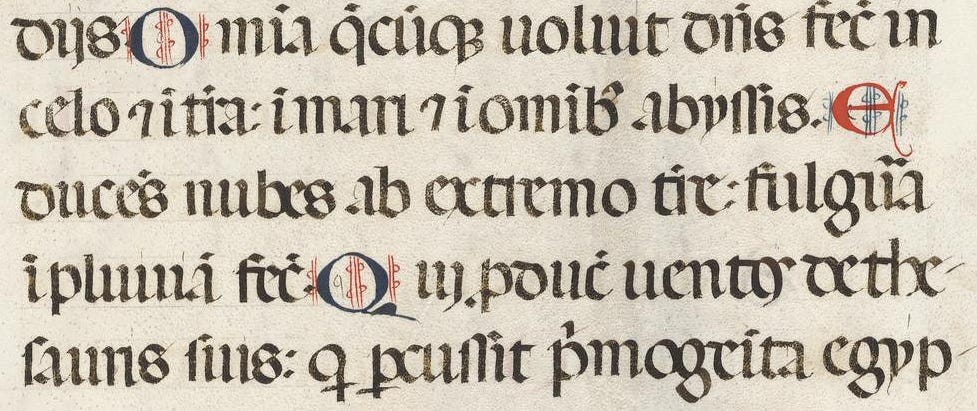 dijs Omīa q̄cūqȝ uoluit dn̄s fec̄ in
celo ⁊ ī tr̄a: ī mari ⁊ ī om̄ib᷒ abyssis. E
ducēs nubes ab extremo tr̄e: fulgur̄a
ī pluuiā fec̄. Q ui ꝓduc̄ uentos de the-
sauris suis: q ꝑcussit p̄mogēita egyp-